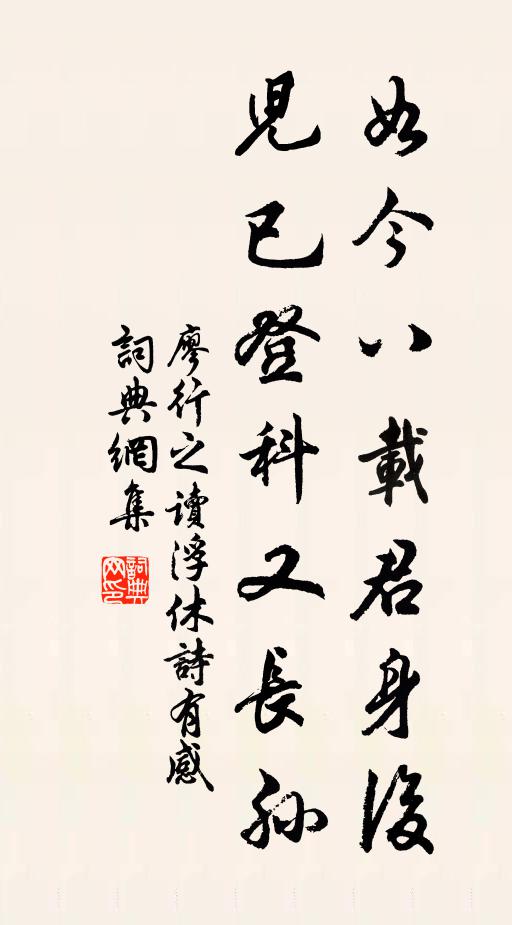 如今八載君身後
兒已登科又長孫
廖行之讀浮休詩有感
詞典網集
詞典网印